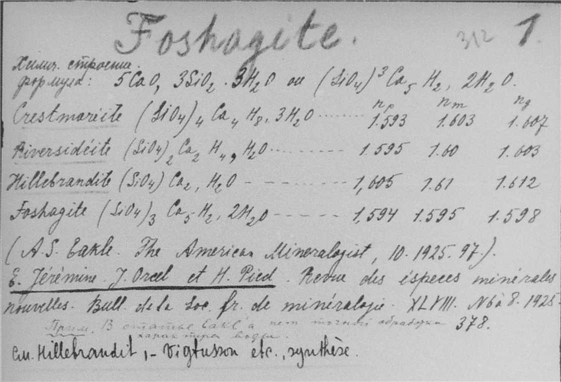 Foshagite. 312 1.
Химич. строение.
формула: 5CaO, 3SiO₂ . 3H₂O ou (SiO₄)³ Ca₅ H₂, 2H₂O.
np nm ng
Crestmoréite (SiO₄)₄ Ca₄ H₈, 3H₂O ------ 1.593 1.603 1.607
Riversidéite (SiO₄)₂ Ca₂ H₄, H₂O ------ 1.595 1.60 1.603
Hillebrandite (SiO₄) Ca₂, H₂O - ------- 1,605 1.61 1.612
Foshagite (SiO₄)₃ Ca₅ H₂, 2H₂O ------ 1,594 1.595 1.598
(A.S. Eakle. The American Mineralogist, 10. 1925. 97).
E. Jérémine. J. Orcel et H. Pied. Revue des éspèces minérales
nouvelles. Bull. de la Soc. fr. de minéralogie. XLVIII. N 6 à 8. 1925-
378.
Прим. В статье нет
См. Hillebrandit, - Vigfusson etc., synthèse.